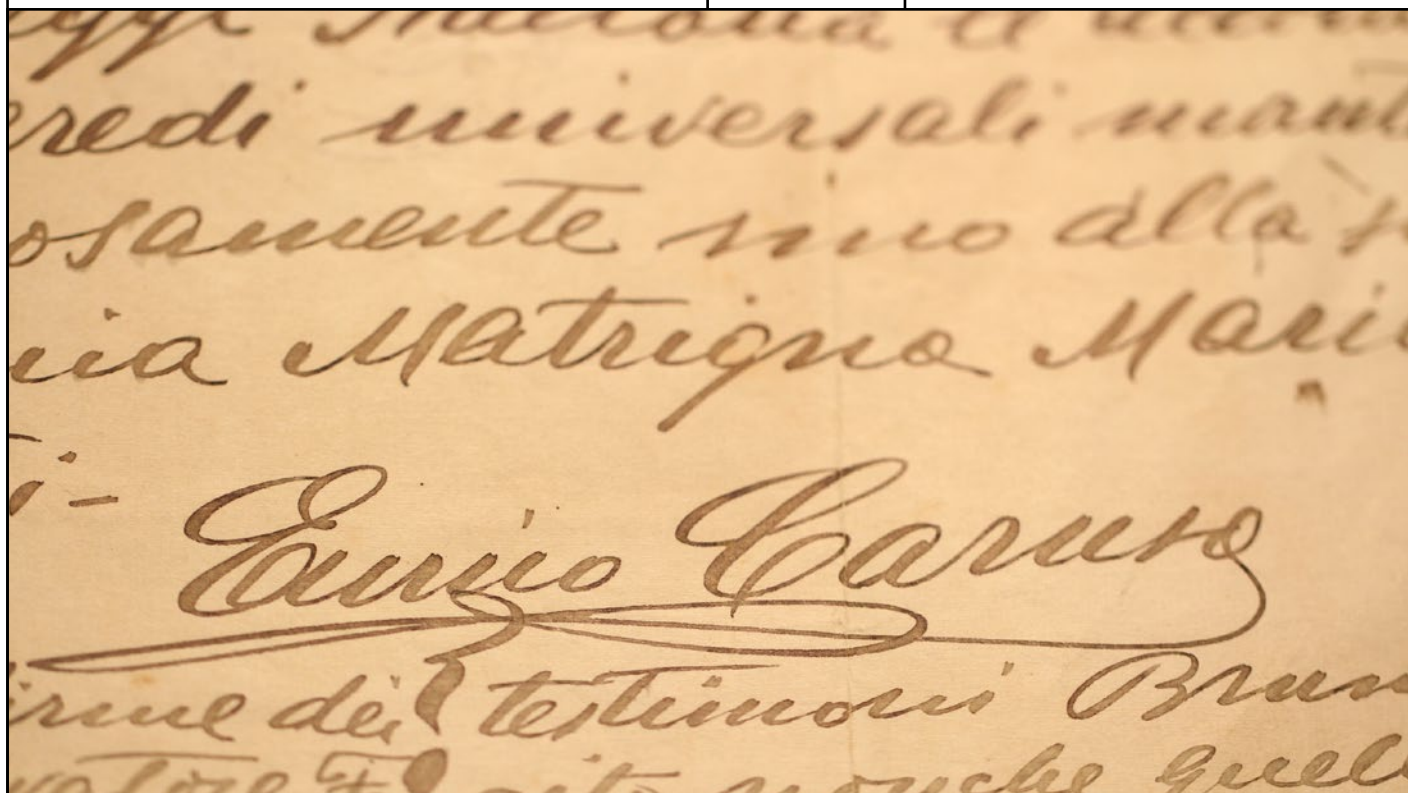 eredi universali mant
osamente sino alla s
mia Matrigna Maria
ti-
Enrico Caruso
firme dei testimoni Brun
nonche quell